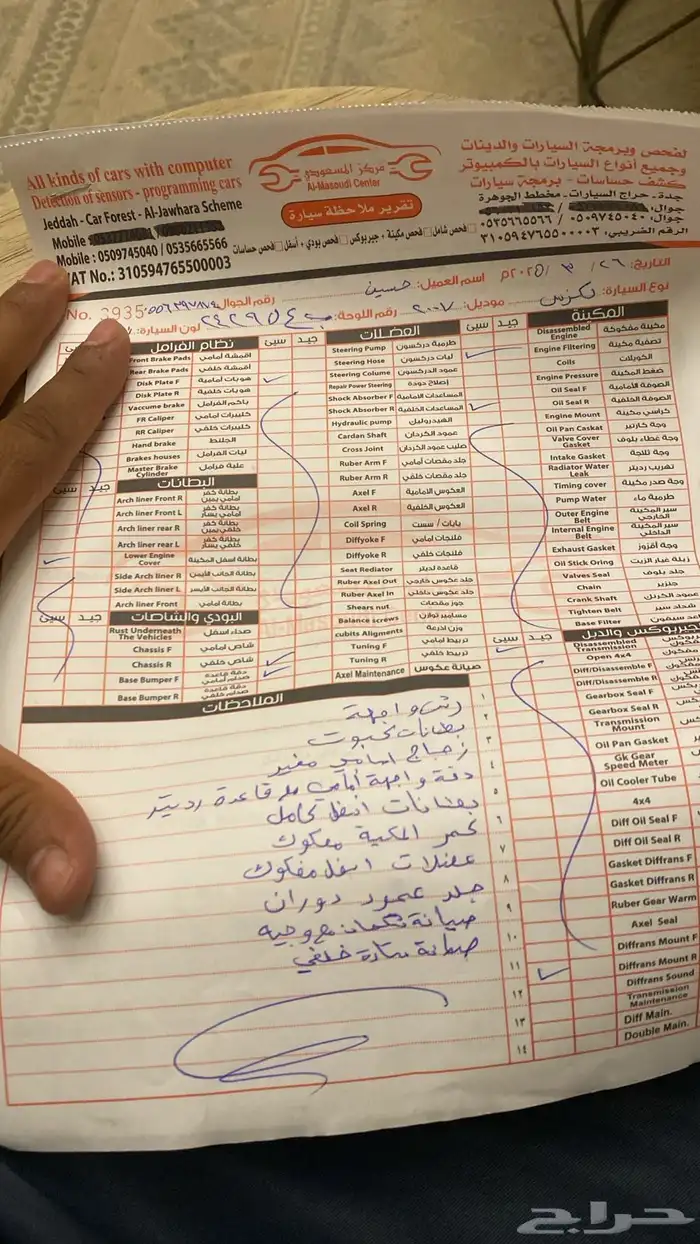 All kinds of cars with computer
Detection of sensors - programming cars
Jeddah - Car Forest - Al-Jawhara Scheme
Mobile
Mobile : 0509745040 / 0535665566
VAT No.: 310594765500003
مركز المسعودي
Al-Masoudi Center
تقرير ملاحظة سيارة
فحص شامل فحص مكينة ، جيربوكس فحص بودي ، أسفل فحص حساسات
لفحص وبرمجة السيارات والدينات
وجميع أنواع السيارات بالكمبيوتر
كشف حساسات - برمجة سيارات
جدة - حراج السيارات - مخطط الجوهرة
جوال:
جوال: ٠٥٠٩٧٤٥٠٤٠ / ٠٥٣٥٦٦٥٥٦٦
الرقم الضريبي: ٣١٠٥٩٤٧٦٥٥٠٠٠٠٣
التاريخ: ٢٦ / ٣ / ٢٠٢٥م اسم العميل: حسين رقم الجوال No. 3935
نوع السيارة: لكزس موديل: ٢٠٠٧ رقم اللوحة: لون السيارة:
المكينة
جيد سيئ
Disassembled Engine مكينة مفكوكة
Engine Filtering تصفية مكينة
Coils الكويلات
Engine Pressure ضغط المكينة
Oil Seal F الصوفة الأمامية
Oil Seal R الصوفة الخلفية
Engine Mount كراسي مكينة
Oil Pan Caskat وجة كارتير
Valve Cover Gasket وجة غطاء بلوف
Intake Gasket وجة ثلاجة
Radiator Water Leak تهريب رديتر
Timing cover وجة صدر مكينة
Pump Water طرمبة ماء
Outer Engine Belt سير المكينة الخارجي
Internal Engine Belt سير المكينة الداخلي
Exhaust Gasket وجة أقزوز
Oil Stick Oring ربلة عيار الزيت
Valves Seal جلد بلوف
Chain جنزير
Crank Shaft عمود الكرنك
Tighten Belt شداد سير
Base Filter
الجيربوكس والدبل
جيد سيئ
Disassembled Transmission
Open 4x4
Diff/Disassemble F
Diff/Disassemble R
Gearbox Seal F
Gearbox Seal R
Transmission Mount
Oil Pan Gasket
Gk Gear Speed Meter
Oil Cooler Tube
4x4
Diff Oil Seal F
Diff Oil Seal R
Gasket Diffrans F
Gasket Diffrans R
Ruber Gear Warm
Axel Seal
Diffrans Mount F
Diffrans Mount R
Diffrans Sound
Transmission Maintenance
Diff Main.
Double Main.
العضلات
جيد سيئ
Steering Pump طرمبة دركسون
Steering Hose ليات دركسون
Steering Colume عمود الدركسون
Repair Power Steering إصلاح دودة
Shock Absorber F المساعدات الأمامية
Shock Absorber R المساعدات الخلفية
Hydraulic pump الهيدروليك
Cardan Shaft عمود الكردان
Cross Joint صليب عمود الكردان
Ruber Arm F جلد مقصات أمامي
Ruber Arm R جلد مقصات خلفي
Axel F العكوس الأمامية
Axel R العكوس الخلفية
Coil Spring يايات / سست
Diffyoke F فلنجات امامي
Diffyoke R فلنجات خلفي
Seat Radiator قاعدة لديتر
Ruber Axel Out جلد عكوس خارجي
Ruber Axel In جلد عكوس داخلي
Shears nut جوز مقصات
Balance screws مسامير توازن
cubits Aligments وزن اذرعة
Tuning F تربيط امامي
Tuning R تربيط خلفي
Axel Maintenance صيانة عكوس
نظام الفرامل
جيد سيئ
Front Brake Pads اقمشة امامي
Rear Brake Pads اقمشة خلفي
Disk Plate F هوبات امامية
Disk Plate R هوبات خلفية
Vaccume brake باكم الفرامل
FR Caliper كليبرات امامي
RR Caliper كليبرات خلفي
Hand brake الجلنط
Brakes houses ليات الفرامل
Master Brake Cylinder علبة فرامل
البطانات
جيد سيئ
Arch liner Front R بطانة كفر امامي يمين
Arch liner Front L بطانة كفر امامي يسار
Arch liner rear R بطانة كفر خلفي يمين
Arch liner rear L بطانة كفر خلفي يسار
Lower Engine Cover بطانة اسفل المكينة
Side Arch liner R بطانة الجانب الأيمن
Side Arch liner L بطانة الجانب الأيسر
Arch liner Front بطانة امامي
البودي والشاصات
جيد سيئ
Rust Underneath The Vehicles صداء اسفل
Chassis F شاص امامي
Chassis R شاص خلفي
Base Bumper F دقة قاعدة صدام امامي
Base Bumper R
الملاحظات
١ رش واجهة
٢ بطانات كبوت
٣ زجاج امامي مغير
٤ دقة واجهة أمامي مع قاعدة رديتر
٥ بطانات اسفل كامل
٦ كمر المكينة مفكوك
٧ عضلات اسفل مفكوك
٨ جلد عمود دوران
٩
١٠
١١
١٢
١٣
١٤
حراج